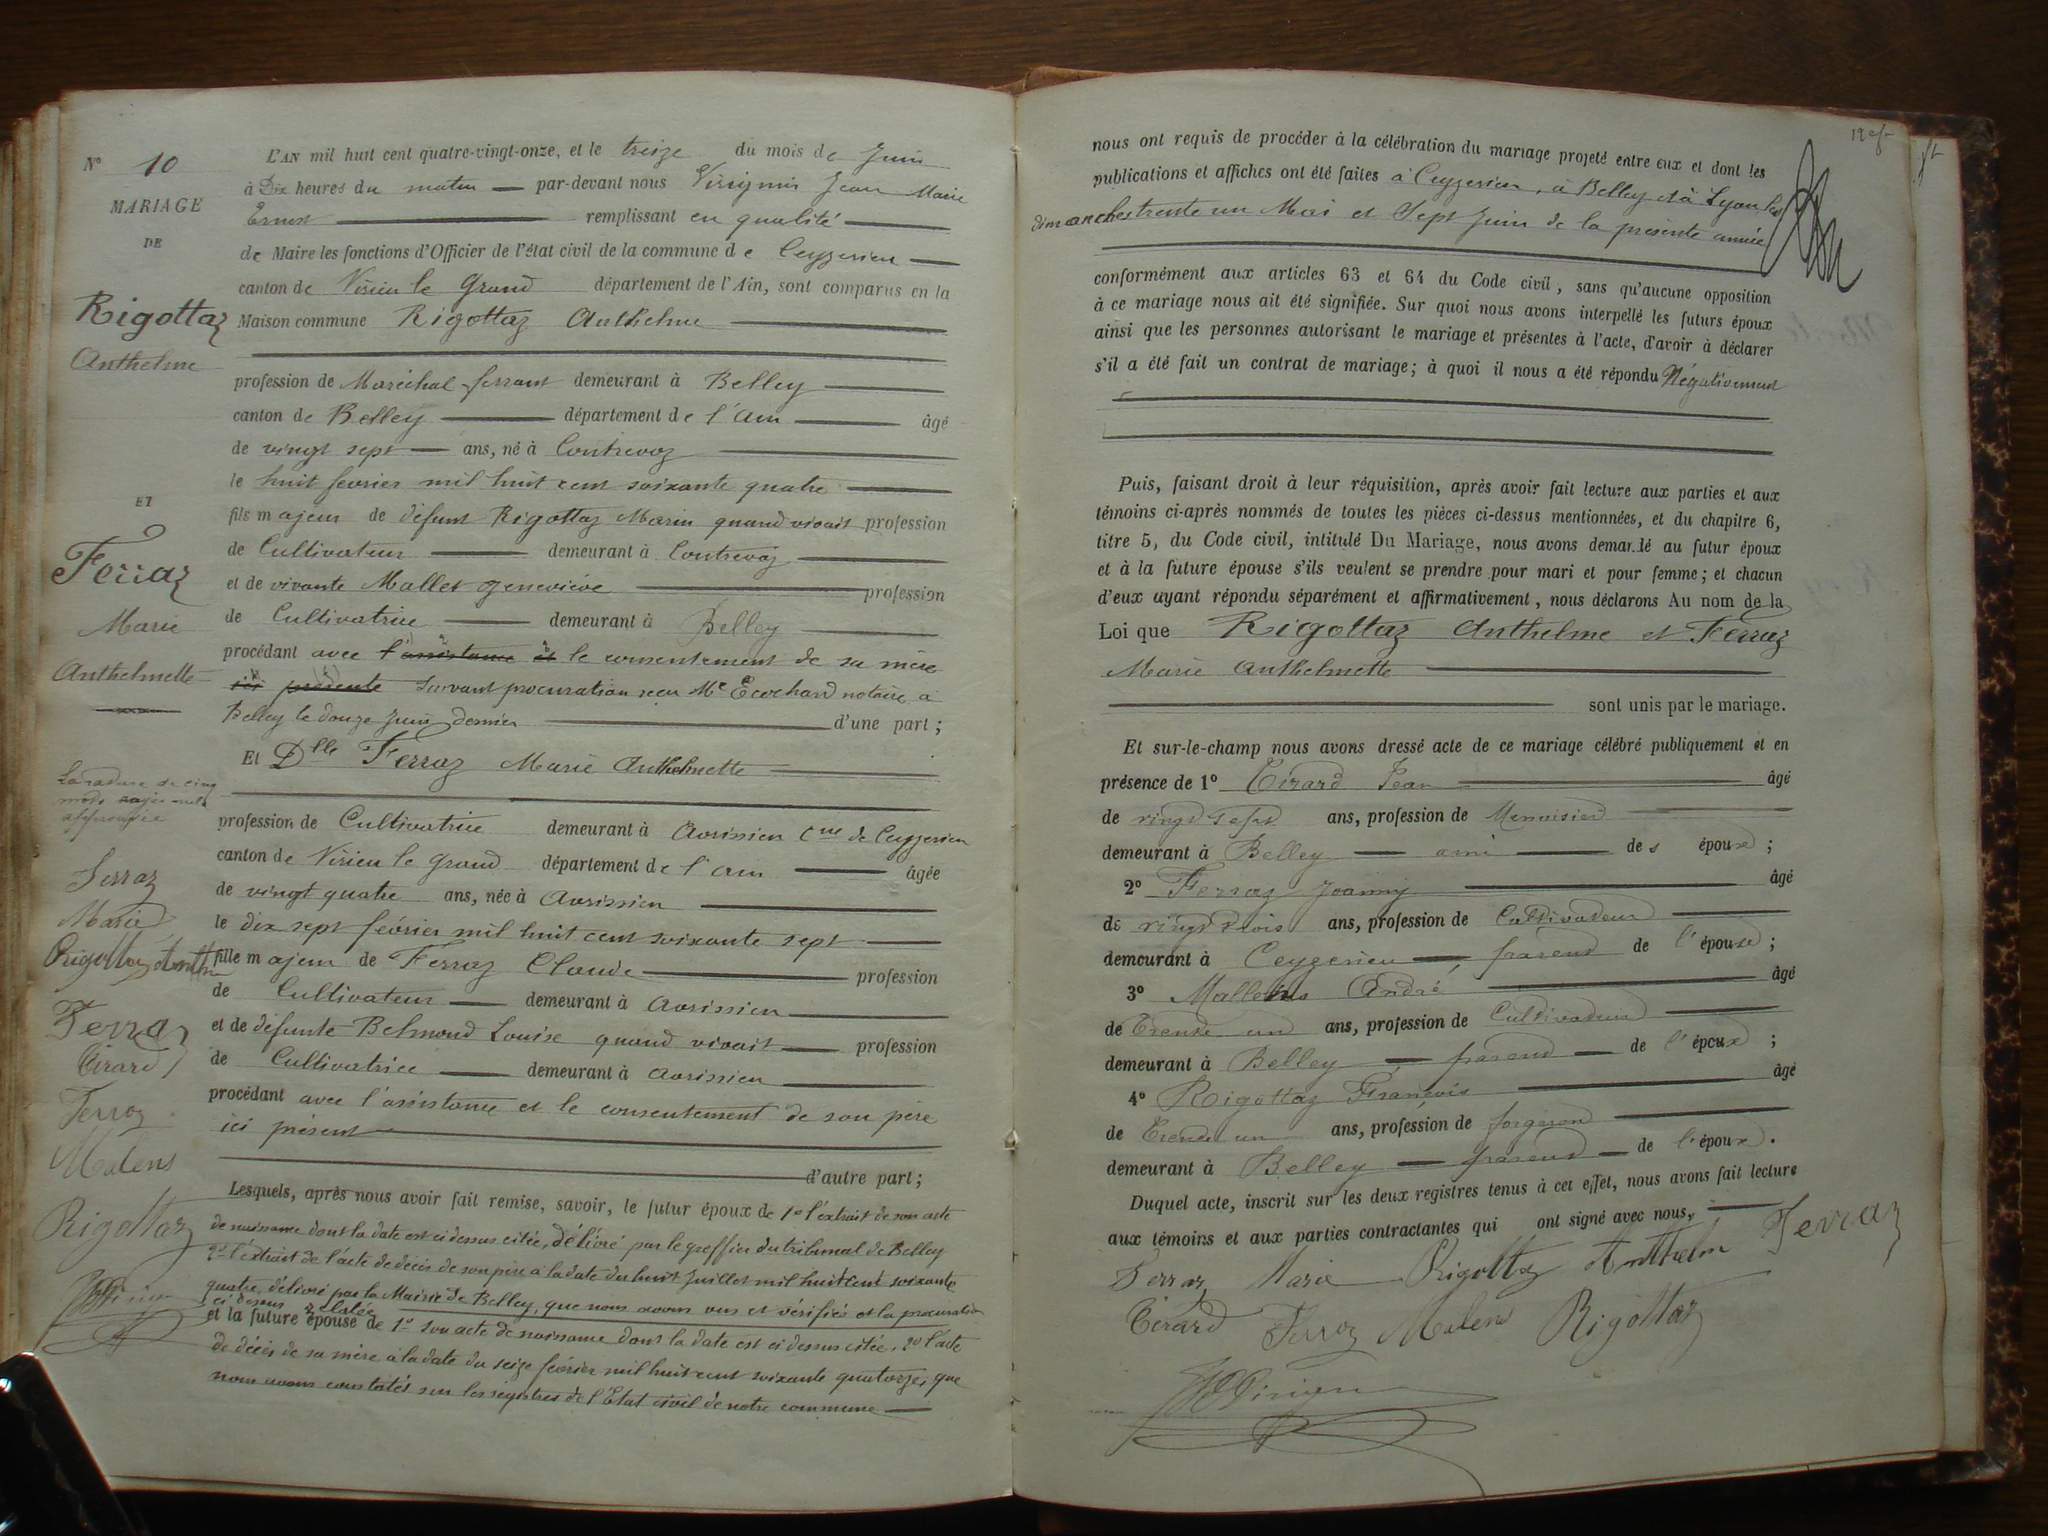 N° 10
MARIAGE
DE
Rigottaz
Anthelme
ET
Ferraz
Marie
Anthelmette
La rature de cinq
mots rayés nuls
approuvée
Ferraz
Marie
Rigottaz Anthelm
Ferraz
Cirard
Ferraz
Malens
Rigottaz
L'AN mil huit cent quatre-vingt-onze, et le treize du mois de Juin
à Dix heures du matin par-devant nous Jean Marie
Ernest remplissant en qualité
de Maire les fonctions d'Officier de l'état civil de la commune de Ceyzerieu
canton de Virieu le Grand département de l'Ain, sont comparus en la
Maison commune Rigottaz Anthelme
profession de Maréchal-ferrant demeurant à Belley
canton de Belley département de l'Ain âgé
de vingt sept ans, né à Contrevoz
le huit février mil huit cent soixante quatre
fils majeur de défunt Rigottaz Marin quand vivait profession
de Cultivateur demeurant à Contrevoz
et de vivante Mallet Geneviève profession
de Cultivatrice demeurant à Belley
procédant avec l'assistance et le consentement de sa mère
ici présente suivant procuration recu Me Ecochard notaire à
Belley le douze Juin dernier d'une part ;
Et Dlle Ferraz Marie Anthelmette
profession de Cultivatrice demeurant à Avrissieu Cne de Ceyzerieu
canton de Virieu le Grand département de l'Ain âgée
de vingt quatre ans, née à Avrissieu
le dix sept février mil huit cent soixante sept
fille majeur de Ferraz Claude profession
de Cultivateur demeurant à Avrissieu
et de défunte Belmond Louise quand vivait profession
de Cultivatrice demeurant à Avrissieu
procédant avec l'assistance et le consentement de son père
ici présent
d'autre part ;
Lesquels, après nous avoir fait remise, savoir, le futur époux de 1° l'extrait de son acte
de naissance dont la date est ci dessus citée, délivré par le greffier du tribunal de Belley
2° l'extrait de l'acte de décès de son père à la date du huit Juillet mil huit cent soixante
quatre, délivré par la Mairie de Belley, que nous avons vus et vérifiés et la procuration
ci dessus relatée
et la future épouse de 1° son acte de naissance dont la date est ci dessus citée, 2° l'acte
de décès de sa mère à la date du seize février mil huit cent soixante quatorze, que
nous avons constatés sur les registres de l'Etat civil de notre commune
nous ont requis de procéder à la célébration du mariage projeté entre eux et dont les
publications et affiches ont été faites à Ceyzerieu, à Belley et à Lyon, les
dimanches trente un Mai et Sept Juin de la présente année
conformément aux articles 63 et 64 du Code civil, sans qu'aucune opposition
à ce mariage nous ait été signifiée. Sur quoi nous avons interpellé les futurs époux
ainsi que les personnes autorisant le mariage et présentes à l'acte, d'avoir à déclarer
s'il a été fait un contrat de mariage; à quoi il nous a été répondu Négativement
Puis, faisant droit à leur réquisition, après avoir fait lecture aux parties et aux
témoins ci-après nommés de toutes les pièces ci-dessus mentionnées, et du chapitre 6,
titre 5, du Code civil, intitulé Du Mariage, nous avons demandé au futur époux
et à la future épouse s'ils veulent se prendre pour mari et pour femme; et chacun
d'eux ayant répondu séparément et affirmativement, nous déclarons Au nom de la
Loi que Rigottaz Anthelme et Ferraz
Marie Anthelmette
sont unis par le mariage.
Et sur-le-champ nous avons dressé acte de ce mariage célébré publiquement et en
présence de 1° Cirard Jean âgé
de vingt sept ans, profession de Menuisier
demeurant à Belley ami des époux ;
2° Ferraz Joanny âgé
de vingt trois ans, profession de Cultivateur
demeurant à Ceyzerieu, parent de l'épouse ;
3° Mallens André âgé
de Trente un ans, profession de Cultivateur
demeurant à Belley parent de l'époux ;
4° Rigottaz François âgé
de Trente un ans, profession de forgeron
demeurant à Belley parent de l'époux.
Duquel acte, inscrit sur les deux registres tenus à cet effet, nous avons fait lecture
aux témoins et aux parties contractantes qui ont signé avec nous,
Ferraz Marie Rigottaz Anthelm Ferraz
Cirard Ferraz Malens Rigottaz